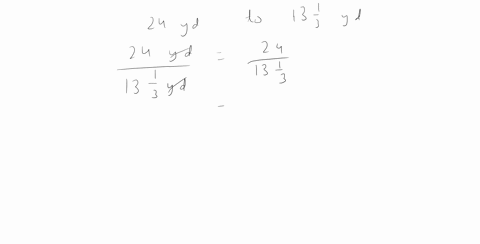 24 yd to 13 1/3 yd
24 yd / 13 1/3 yd = 24 / 13 1/3
=